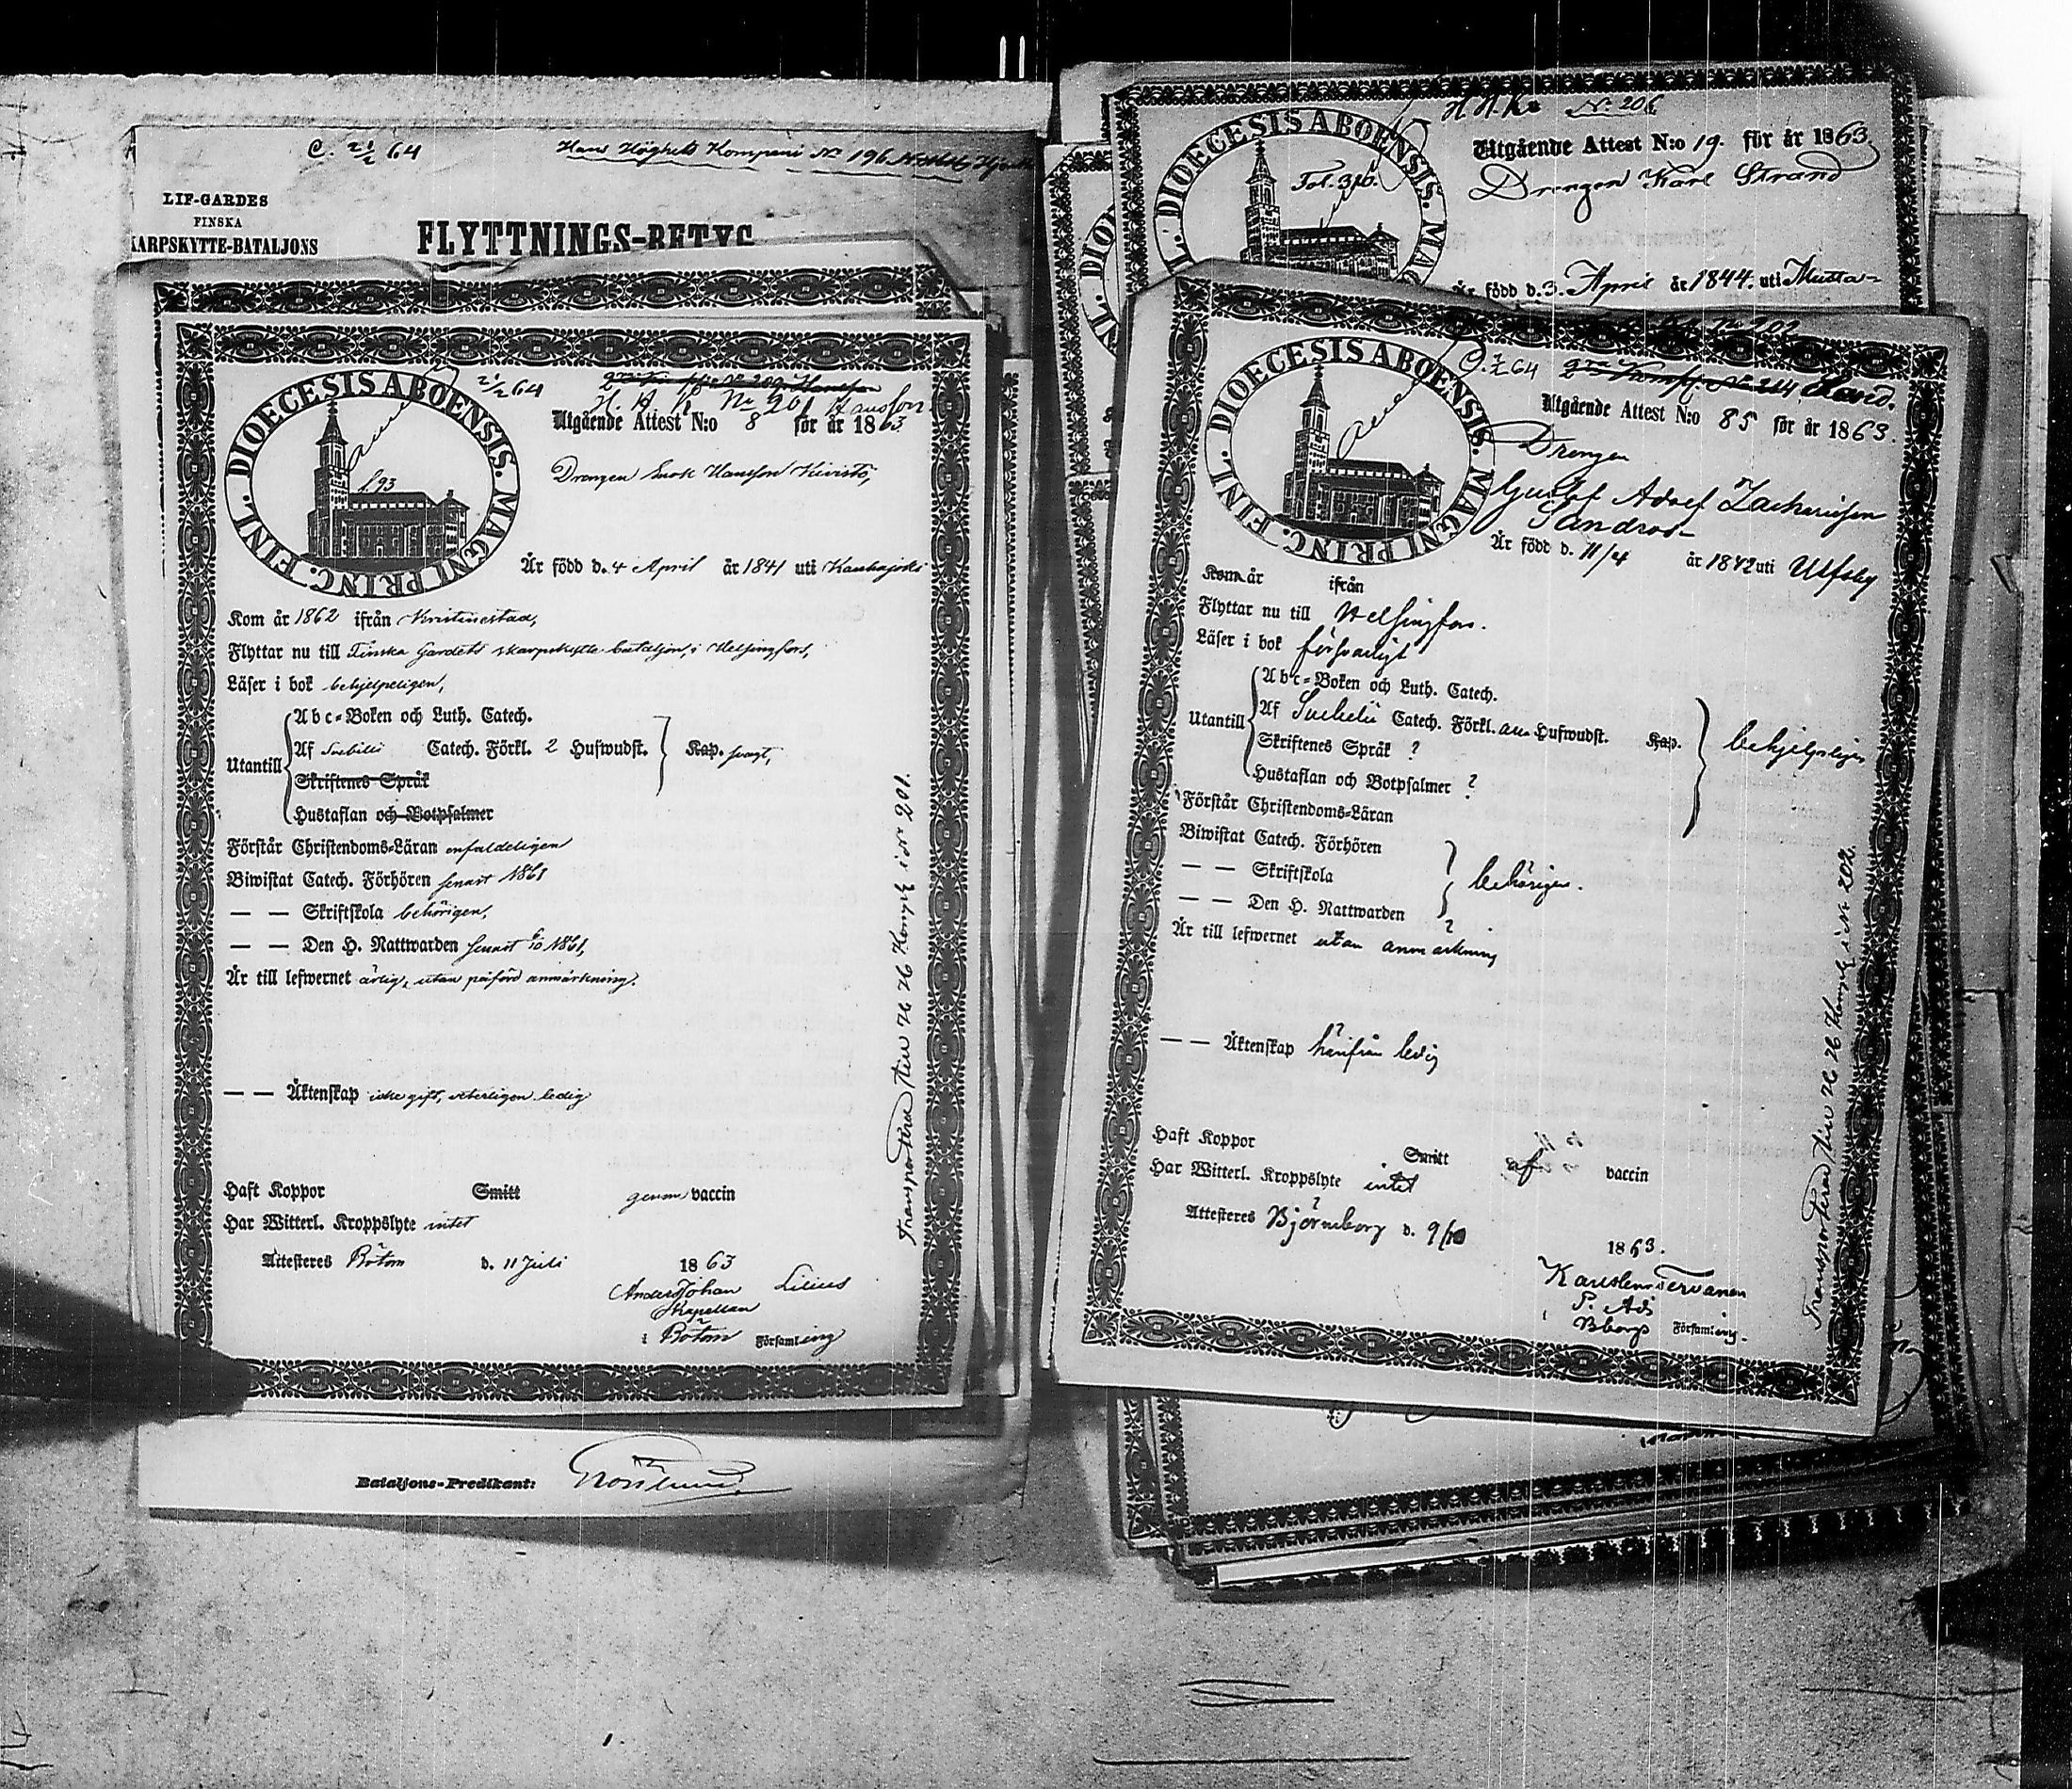 C. 2½ 64
Hans Höghets Kompani No 196
LIF-GARDES
FINSKA
KARPSKYTTE-BATALJONS
FLYTTNINGS-BETYG
DIOECESIS ABOENSIS. MAGNI PRINC. FINL.
f. 93
2½ 64
H. H. K No 201 Hansson
Utgående Attest N:o 8 för år 1863.
Drengen Enok Hansson Kivistö,
Är född d. 4 April år 1841 uti Kauhajoki
Kom år 1862 ifrån Kristinestad,
Flyttar nu till Finska Gardets skarpskytte bataljon, i Helsingfors,
Läser i bok behjelpeligen,
Utantill
Abc-Boken och Luth. Catech.
Af Svebilii Catech. Förkl. 2 Hufwudst. Kap. svagt,
Skriftenes Språk
Hustaflan och Botpsalmer
Förstår Christendoms-Läran enfaldeligen
Biwistat Catech. Förhören senast 1861
— — Skriftskola behörigen,
— — Den H. Nattwarden senast 6/10 1861,
Är till lefwernet ärlig, utan påförd anmärkning.
— — Äktenskap icke gift, veterligen ledig
Haft Koppor Smitt genom vaccin
Har Witterl. Kroppslyte intet
Attesteres Bötom d. 11 Juli 1863
Anders Johan Lilius
Kapellan
i Bötom Församling
Transporteras från H. H. Kompi i No 201.
Bataljons-Predikant:
H. H. Ko No 206
DIOECESIS ABOENSIS. MAG
Fol. 310.
Utgående Attest N:o 19. för år 1863.
Drengen Karl Strand
Är född d. 3. April år 1844. uti Musta-
No 202
C. ½ 64
DIOECESIS ABOENSIS. MAGNI PRINC. FINL.
Utgående Attest N:o 85 för år 1863.
Drengen
Gustaf Adolf Zachariasson
Sandroos
Är född d. 11/4 år 1842 uti Ulfsby
Kom år ifrån
Flyttar nu till Helsingfors.
Läser i bok försvarligt
Utantill
Abc-Boken och Luth. Catech.
Af Svebelii Catech. Förkl. Hufwudst. Kap. behjelpeligen
Skriftenes Språk ?
Hustaflan och Botpsalmer ?
Förstår Christendoms-Läran
Biwistat Catech. Förhören
— — Skriftskola behörigen.
— — Den H. Nattwarden
Är till lefwernet utan anmärkning
— — Äktenskap härifrån ledig
Haft Koppor Smitt af vaccin
Har Witterl. Kroppslyte intet
Attesteres Björneborg d. 9/10 1863.
P. Adj
Bborgs Församling.
Transporteras från H. H. Kompi i No 202.